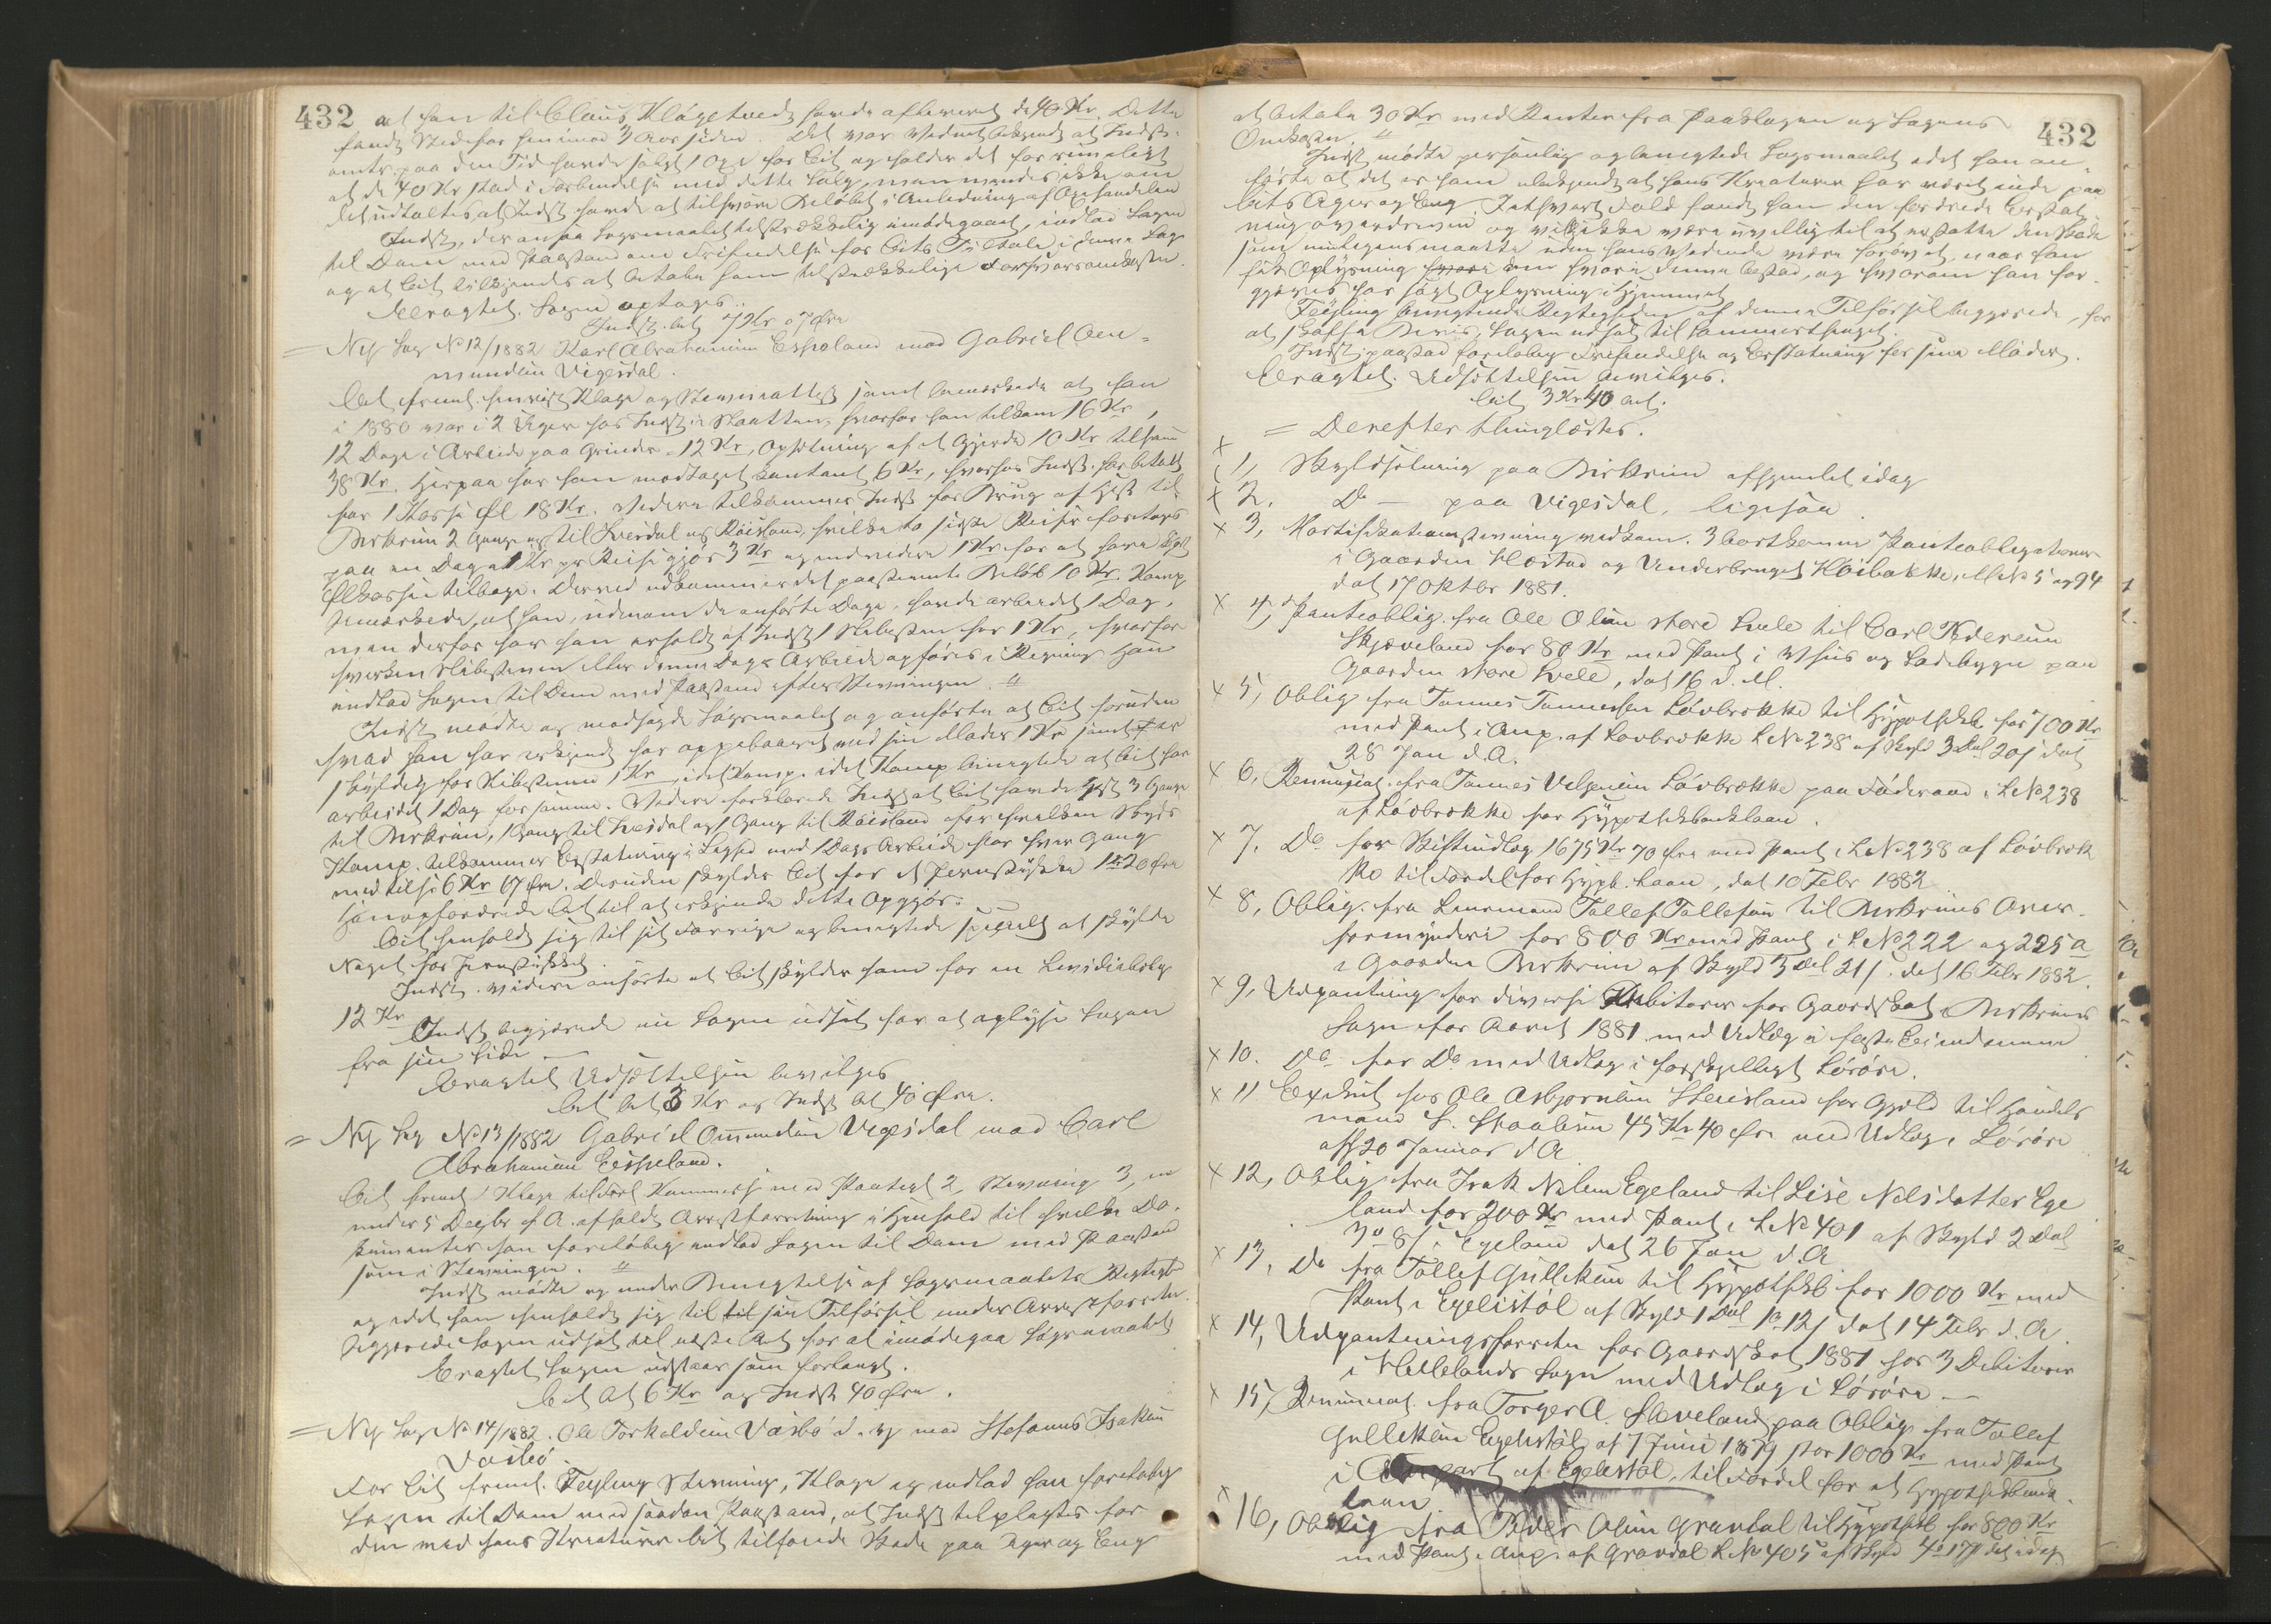 432
at han til Claus Klægetvedt havde afleveret de 40 Kr. Dette
fandt Sted for henimod 3 Aar siden. Det var Vednet bekjendt at Indst.
paa den Tid havde solgt 1 Oxe for Cit og holder det for rimeligt
at de 40 Kr stod i Forbindelse med dette Salg, men mindes ikke om
det udtaltes, at Indst havde at tilsvare Beløbet i Anledning af Oxehandelen
Indst, der ansaa Sagsmaalet tilstrækkelig imødegaaet, indlod Sagen
til Dom med Paastand om Frifindelse for Cits Tiltale i denne Sag
og at Cit tilkjendes at betale ham tilstrækkelige Forsvarsomkostn.
Eragtet. Sagen optages.
Indst. bet 7 Kr 07 Øre
= Ny Sag No 12/1882 Karl Abrahamsen Espeland mod Gabriel Om-
mundsen Vigesdal.
Cit freml. Klage og Stevning samt bemærkede at han
i 1880 var i 2 Uger hos Indst i Slaatten, hvorfor han tilkom 16 Kr,
12 Dage i Arbeide paa Grinder 12 Kr, Opsætning af et Gjerde 10 Kr tilsam
38 Kr. Herpaa har han modtaget kontant 6 Kr, hvorhos Indst. har betalt
for 1 Kasse Øl 18 Kr. Videre tilkommer Indst for Brug af Hest til
Birkrem 2 Gange og til Hvesdal og Røisland, hvilke to sidste Reiser foretoges
paa en Dag a 1 Kr pr Reise gjør 3 Kr og endvidere 1 Kr for at have kjørt
Ølkassen tilbage. Derved udkommer det paastevnte Beløb 10 Kr. Komp
bemærkede, at han, udenom de anførte Dage, havde arbeidet 1 Dag,
men derfor har han erholdt af Indst 1 Slibesten for 1 Kr, hvorfor
hverken Slibestenen eller denne Dags Arbeide opføres i Regning. Han
indlod Sagen til Dom med Paastand efter Stevningen.
Indst mødte og modsagde Sagsmaalet og anførte at Cit foruden
hvad han har erkjendt har oppebaaret ved sin Moder 1 Kr samt er
skyldig for Slibestenen 1 Kr, idet Komp benegtede at Cit har
arbeidet 1 Dag for samme. Videre forklarede Indst at Cit havde Hest 3 Gange
til Birkrem, 1 Gang til Hvesdal og 1 Gang til Røisland for hvilken Skyds
Komp. tilkommer Erstatning i Lighed med 1 Dags Arbeide for hver Gang
med tilsv 6 Kr 67 Øre. Desuden skylder Cit for et Jernstykke 1 Kr 20 Øre
Han opfordrede Cit til at erkjende dette Opgjør.
Cit henholdt sig til sit Forrige og benegtede specielt at skylde
Noget for Jernstykket.
Indst. videre anførte at Cit skylder ham for en
12 Kr
Indst begjærede nu Sagen udsat for at oplyse Sagen
fra sin Side
Eragtet Udsættelsen bevilges
Cit bet 3 Kr og Indst bet 40 Øre.
= Ny Sag No 13/1882 Gabriel Ommundsen Vigesdal mod Carl
Abrahamsen Espeland.
Cit freml. Klage til Forl. Kommiss. med Paategn 2, Stevning 3, en
under 5 Decbr f. A. afholdt Arrestforretning i Henhold til hvilke Do-
kumenter han foreløbig indlod Sagen til Dom med Paastand
som i Stevningen.
Indst mødte og under Benegtelse af Sagsmaalets Rigtighed
og idet han henholdt sig til til sin Tilførsel under Arrestforretn.
begjærede Sagen udsat til næste Ret for at imødegaa Sagsmaalet
Eragtet Sagen udstaar som forlangt.
Cit bet 6 Kr og Indst 40 Øre.
= Ny Sag No 14/1882. Ole Torkeldsen Vasbø d. y mod Stefanus Isaksen
Vasbø.
For Cit freml. Feyling Stevning, Klage og indlod han foreløbig
Sagen til Dom med saadan Paastand, at Indst tilpligtes for
den med hans Kreaturer Cit tilføiede Skade paa Ager og Eng
432
at betale 30 Kr med Renter fra Paaklagen og Sagens
Omkostn.
Indst mødte personlig og benegtede Sagsmaalet idet han an-
førte at det er ham ubekjendt at hans Kreaturer har været inde paa
Cits Ager og Eng. I ethvert Fald fandt han den fordrede Erstat-
ning overdreven og vil ikke være uvillig til at erstatte den Skade
som muligens maatte uden hans Vidende være forøvet, naar han
fik Oplysning hvori den hvori denne bestod, og hvorom han for-
gjæves har søgt Oplysning i Hjemmet
Feyling benegtende Rigtigheden af denne Tilførsel begjærede, for
at skaffe Bevis, Sagen udsat til Sommerthinget.
Indst paastod foreløbig Frifindelse og Erstatning for sine Møder.
Eragtet. Udsættelsen bevilges.
Cit 3 Kr 40 bet.
= Derefter thinglæstes.
x 1, Skyldsetning paa Birkrem afhjemlet idag
x 2, Do — paa Vigesdal, ligesaa
x 3, Mortifikationsstevning vedkom. 3 bortkomne Panteobligationer
i Gaarden Mæstad og Underbruget Høibakke, M No 5 og 94
dat 17 Oktbr 1881.
x 4, Panteoblig. fra Ole Olsen store Svele til Carl Pedersen
Skjæveland for 80 Kr med Pant i Vhus og Ladebygn paa
Gaarden store Svele, dat 16 d. M.
x 5, Oblig fra Tønnes Tønnessen Løvbrække til Hypothekb. for 700 Kr
med Pant i Anp. af Løvbrække L No 238 af Skyld 3 Dal 20 s dat
28 Jan d. A.
x 6, Renunciat. fra Tønnes Velgersen Løvbrække paa Føderaad i L No 238
af Løvbrække for Hypothekbanklaan.
x 7, Do for Skifteudlæg 1675 Kr 70 Øre med Pant i L No 238 af Løvbræk
ke til Fordel for Hypb. Laan, dat 10 Febr 1882
x 8, Oblig. fra Lensmand Tollef Tollefsen til Birkrems Over-
formynderi for 800 Kr med Pant i L No 222 og 225 a
i Gaarden Birkrem af Skyld 3 Dal 21 s. dat 16 Febr 1882.
x 9, Udpantning for diverse Debitorer for Gaardskat i Birkrems
Sogn for Aaret 1881 med Udlæg i faste Eiendomme
x 10. Do for Do med Udlæg i forskjelligt Løsøre.
x 11 Exekut hos Ole Asbjørnsen Steinsland for Gjæld til Handels
mand S. Skaalsen 45 Kr 40 Øre med Udlæg i Løsøre
afh 20 Januar d A
x 12, Oblig fra Isak Nilsen Egeland til Lise Nilsdatter Ege
land for 200 Kr med Pant i L No 401 af Skyld 2 Dal
8 s i Egeland dat 26 Jan d. A
x 13, Do fra Tollef Gulliksen til Hypothekb for 1000 Kr med
Pant i Egelistøl af Skyld 1 Dal 1 o 12 s dat 14 Febr d. A.
x 14, Udpantningsforretn for Gaardskat 1881 hos 3 Debitorer
i Hellelands Sogn med Udlæg i Løsøre —
x 15, Renunciat. fra Torger A. Sleveland paa Oblig fra Tollef
Gulliksen Egelistøl af 7 Juni 1879 stor 1000 Kr med Pant
i part af Egelistøl, til Fordel for et Hypothekbank-
laan.
x 16, Oblig fra Peder Olsen Gravdal til Hypothekb for 800 Kr
med Pant i Anp. af Gravdal L No 405 af Skyld 4 o 17 s dat idag